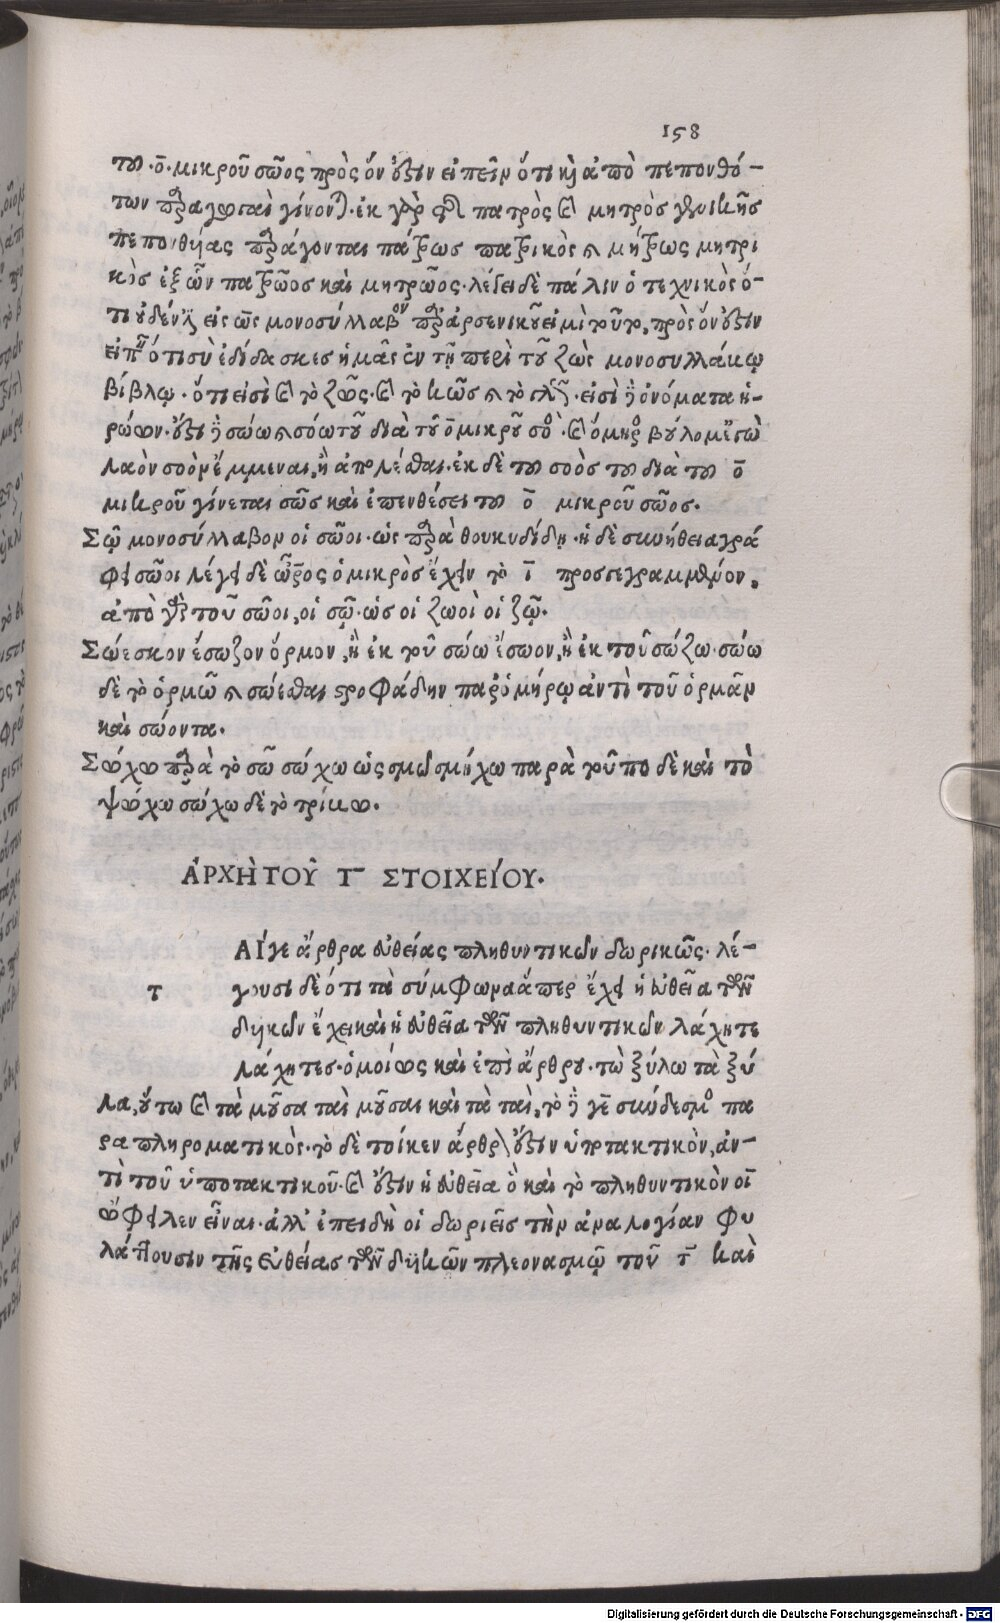 158
του ο̄ μικροῦ σῶος πρὸς ὅν ἐστιν εἰπεῖν ὅτι καὶ ἀπὸ πεπονθό-
των παραγωγαὶ γίνονται. ἐκ γὰρ τῆς πατρὸς καὶ μητρὸς γενικῆς
πεπονθυίας παράγονται πάτρως πατρικὸς καὶ μήτρως μητρι
κὸς ἐξ ὧν πατρῶος καὶ μητρῶος. λέγει δὲ πάλιν ὁ τεχνικὸς ὅ-
τι οὐδὲν εἰς ως μονοσύλλαβον παρ' ἀρσενικοῦ εἰ μὴ τοῦτο, πρὸς ὅν ἐστιν
εἰπεῖν ὅτι σὺ ἐδίδασκες ἡμᾶς ἐν τῇ περὶ τοῦ ζὼς μονοσυλλάβῳ
βίβλῳ. ὅτι εἰσὶ καὶ τὸ ζῶς. καὶ τὸ κῶς καὶ τὸ εἰσὶ δὲ ὀνόματα ἡ-
ρώων. ἔστι δὲ σώω καὶ σόω τοῦ διὰ τοῦ ο̄ μικροῦ σόος. καὶ ὅμηρος βούλομ' ἐγὼ
λαὸν σόον ἔμμεναι, ἢ ἀπολέσθαι. ἐκ δὲ του σοὸς του διὰ του ο̄
μικροῦ γίνεται σῶς καὶ ἐπενθέσει του ο̄ μικροῦ σῶος.
Σῷ μονοσύλλαβον οἱ σῶοι. ὡς παρὰ θουκυδίδῃ. ἡ δὲ συνήθεια γρά
φει σῶοι λέγει δὲ ὦρος ὁ μικρὸς ἔχειν τὸ ῑ προσγεγραμμένον,
ἀπὸ γὰρ τοῦ σῶοι, οἱ σῷ. ὡς οἱ ζωοὶ οἱ ζῷ.
Σώεσκον ἔσωζον ὅρμον, ἢ ἐκ τοῦ σώω ἔσωον, ἢ ἐκ τοῦ σώζω. σώω
δὲ τὸ ὁρμῶ καὶ σώεσθαι στροφάδην παρ' ὁμήρῳ ἀντὶ τοῦ ὁρμᾶν
καὶ σώοντα.
Σώχω παρὰ τὸ σῶ σώχω ὡς σμῶ σμήχω παρὰ τοῦτο δὲ καὶ τὸ
ψώχω σώχω δὲ τὸ τρίβω.
ἈΡΧῊ ΤΟΥ͂ Τ ΣΤΟΙΧΕΊΟΥ.
ΑΊγε ἄρθρα εὐθείας πληθυντικῶν δωρικῶς. λέ-
τ
γουσι δὲ ὅτι τὰ σύμφωνα ἅπερ ἔχει ἡ εὐθεῖα τῶν
δυϊκῶν ἔχει καὶ ἡ εὐθεῖα τῶν πληθυντικῶν λάχητε
λάχητες. ὁμοίως καὶ ἐπὶ ἄρθρου. τὼ ξύλω τὰ ξύ
λα, οὕτω καὶ τὰ μοῦσα ταὶ μοῦσαι καὶ τὰ ταὶ, τὸ δὲ γε σύνδεσμος πα
ραπληρωματικὸς. τὸ δὲ τοίκεν ἄρθρον ἐστιν ὑποτακτικὸν, ἀν-
τὶ τοῦ ὑποτακτικοῦ. καὶ ἐστιν ἡ εὐθεῖα ὃ καὶ τὸ πληθυντικὸν οἳ
ὤφειλεν εἶναι. ἀλλ' ἐπειδὴ οἱ δωριεῖς τὴν ἀναλογίαν φυ
λάττουσιν τῆς εὐθείας τῶν δυϊκῶν πλεονασμῷ τοῦ τ̄ καὶ
Digitalisierung gefördert durch die Deutsche Forschungsgemeinschaft - DFG